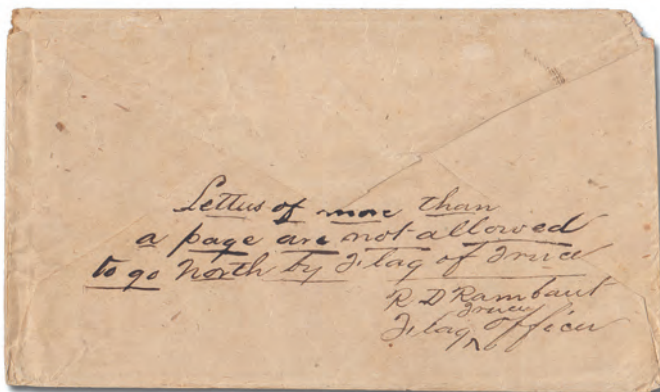 Letters of more than
a page are not allowed
to go North by Flag of Truce
R D Rambaut
Truce
Flag ^ Officer